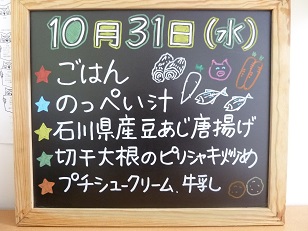 10月31日(水)
ごはん
のっぺい汁
石川県産豆あじ唐揚げ
切干大根のピリシャキ炒め
プチシュークリーム、牛乳